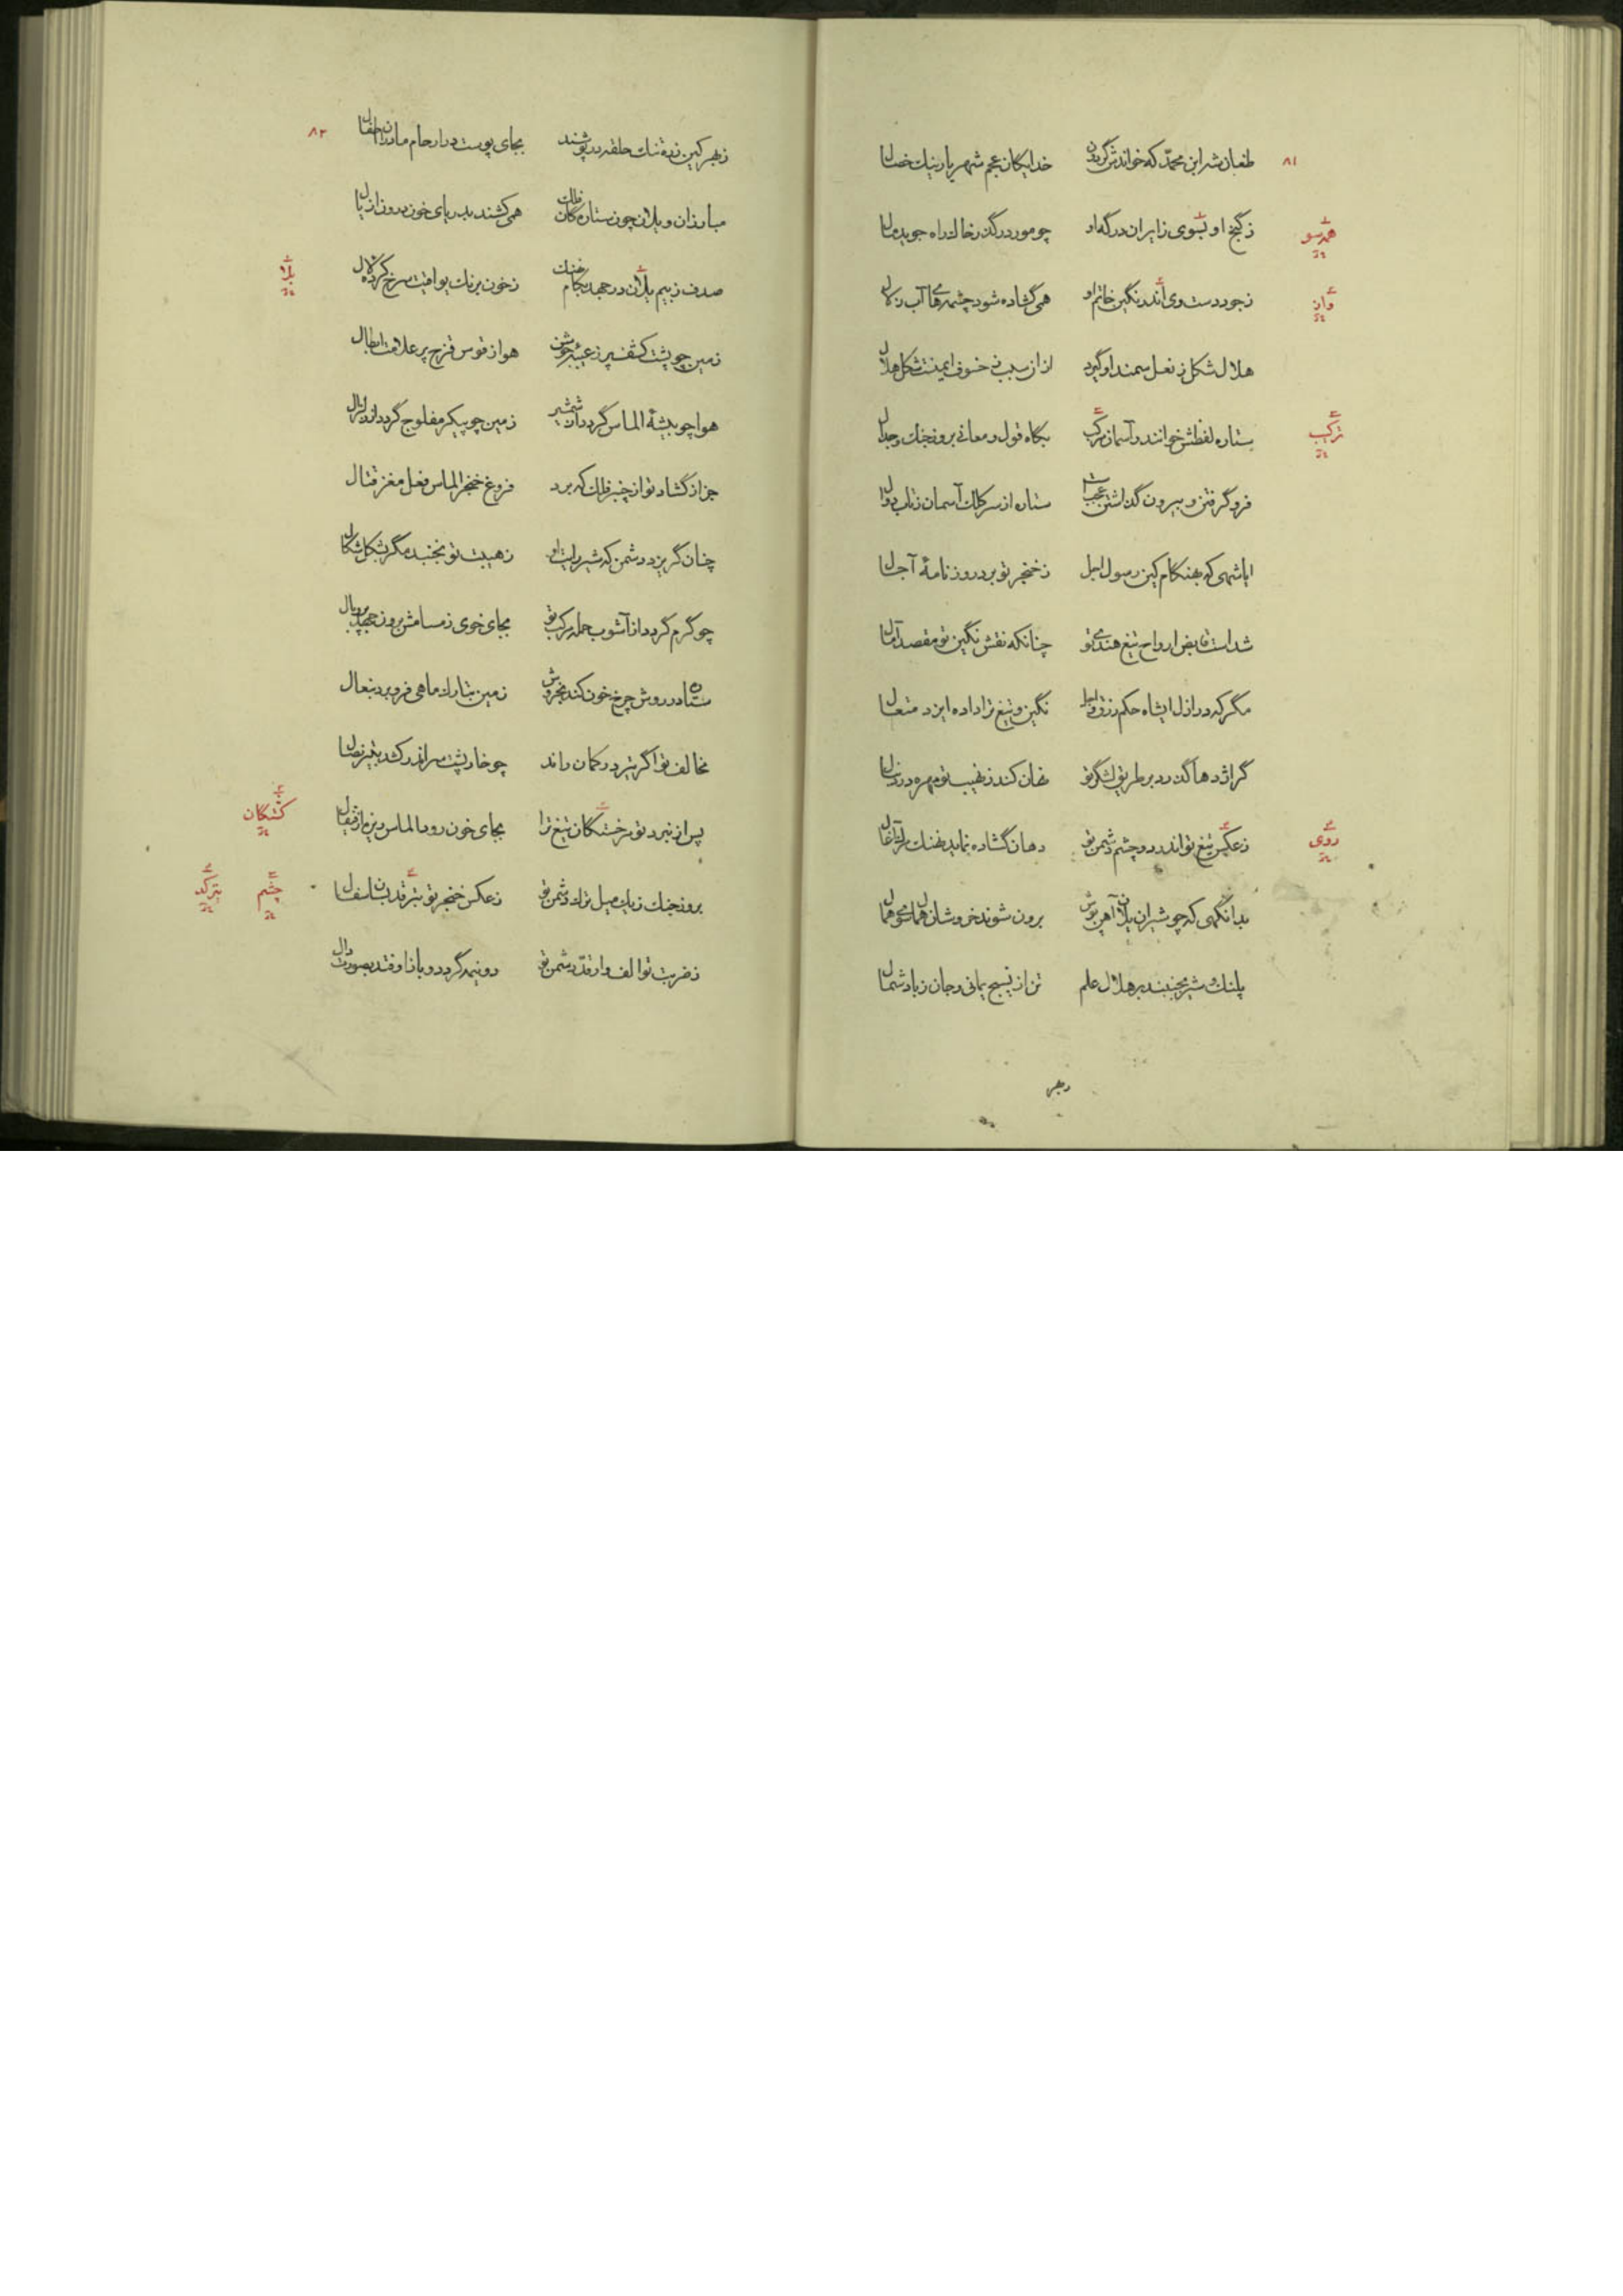 ۸۱
طغانشه ابن محمد که خواندش گردون خدایکان عجم شهریار نیك خصال
ز گنج او بسوی زایران درگه او چو مور در گذر خاك راه جوید مال
همه سو
ز جود دست وی اندر نگین خاتم او همی گشاده شود چشمهای آب زلال
وان
هلال شکل ز نعل سمند او گیرد از ان سبب ز خسوف ایمنست شکل هلال
ستاره لفظش خوانند و آسمان مرکب بگاه قول و معانی بروز جنك و جدال
ترکیب
فرو گرفتن و بیرون گذاشتن عجب ستاره از سر کلك آسمان زتاب دوال
ایا شهی که بهنکام کین رسول اجل ز خنجر تو برد روزنامۀ آجال
شد است قابض ارواح تیغ هندی تو چنانکه نقش نگین تو مقصد آمال
مگر که در ازل ایشاه حکم رزق و اجل نگین و تیغ ترا داده ایزد متعال
گر اژدها گذرد بر طریق لشگر تو نهان کند ز نهیب تو مهره در دنبال
ز عکس تیغ تو اندر دو چشم دشمن تو دهان گشاده نماید نهنك
روی
بدانگهی که چو شیران یلان آهن پوش برون شوند خروشان همال سوی همال
پلنك و شیر بجنبند بر هلال علم تن از نسیج یمانی و جان ز باد شمال
زبهر
۸۲
زبهر کین زرۀ تنك حلقه در پوشند بجای پوست در ارحام مادران اطفال
مبارزان و یلان چون ستارگان فلك همی کشند بدریای خون درون اذیال
صدف ز بیم یلان در جهد بکام نهنك ز خون برنك یواقیت سرخ کرده لآل
یلا
زمین چو پشت کشف پر ز عیبۀ جوشن هوا ز قوس قزح پر علامت ابطال
هوا چو بیشۀ الماس گردد از شمشیر زمین چو پیکر مفلوج گردد از زلزال
جز از گشاد تو از چنبر فلك که برد فروغ خنجر الماس فعل مغز قتال
چنان گریزد دشمن که شیر رایت او ز هیبت تو نجنبد مگر بشکل شکال
چو گرم گردد از آشوب حمله مرکب تو بجای خوی ز مسامش برون جهد پر و بال
ستاره در روش چرخ خون کند بخروش زمین بتارك ماهی فرو برد بنعال
مخالف تو اگر تیر در کمان راند چو خارپشت سر اندر کشد بتیر نصال
پس از نبرد تو مر خستگان تیغ ترا بجای خون رود الماس ریزه از قیفال
کشتگان
بروز جنك ز یك میل ترك دشمن تو ز عکس خنجر تو بترقد
چشم
بترکد
ز ضربت تو الف وار قد دشمن تو دو نیمه گردد و باز اوفتد بصورت دال